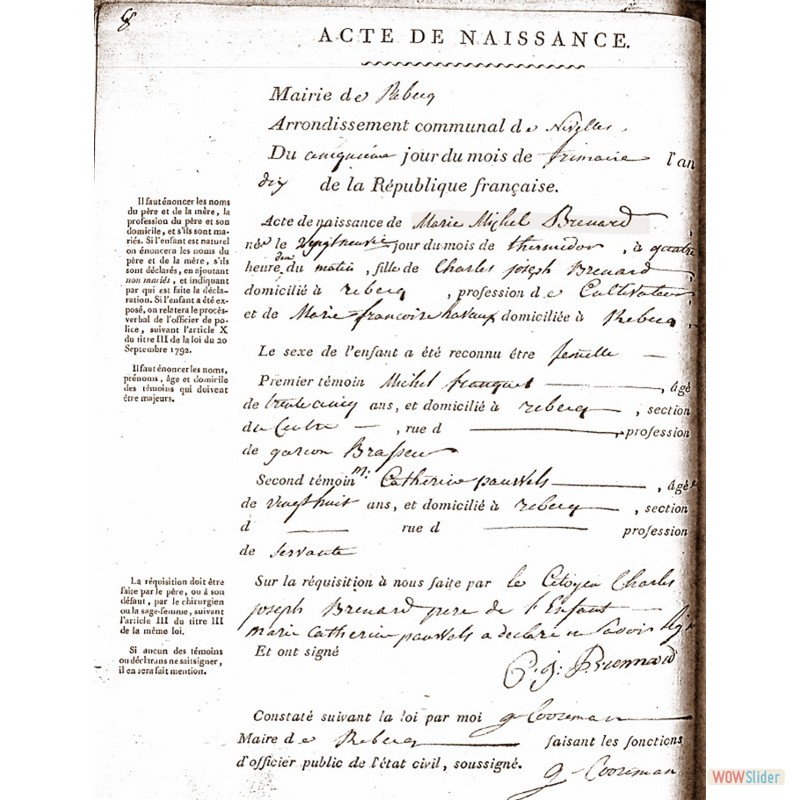 8
ACTE DE NAISSANCE.
Mairie de Rebecq
Arrondissement communal de Nivelles.
Du cinquième jour du mois de frimaire l'an
dix de la République française.
Il faut énoncer les noms
du père et de la mère, la
profession du père et son
domicile, et s'ils sont ma-
riés. Si l'enfant est naturel
on énoncera les noms du
père et de la mère, s'ils
sont déclarés, en ajoutant
non mariés, et indiquant
par qui est faite la décla-
ration. Si l'enfant a été ex-
posé, on relatera le procès-
verbal de l'officier de po-
lice, suivant l'article X
du titre III de la loi du 20
Septembre 1792.
Il faut énoncer les noms,
prénoms, âge et domicile
des témoins qui doivent
être majeurs.
Acte de naissance de Marie Michel Brenard,
née le jour du mois de thermidor, à quatre
heure du matin, fille de Charles joseph Brenard,
domicilié à rebecq, profession de Cultivateur,
et de Marie francoise havaux domiciliée à Rebecq.
Le sexe de l'enfant a été reconnu être femelle
Premier témoin Michel franquet, âgé
de trente cinq ans, et domicilié à rebecq, section
du Centre, rue d, profession
de garcon Brasseur
Second témoin m: Catherine pauwels, âgée
de vingt huit ans, et domicilié à rebecq, section
d rue d profession
de servante
La réquisition doit être
faite par le père, ou à son
défaut, par le chirurgien
ou la sage-femme, suivant
l'article III du titre III
de la même loi.
Si aucun des témoins
ou déclarans ne sait signer,
il en sera fait mention.
Sur la réquisition à nous faite par le Citoyen Charles
joseph Brenard pere de l'Enfant
marie Catherine pauwels a declaré ne savoir
Et ont signé
C. j. Brennard
Constaté suivant la loi par moi g Cooreman
Maire de Rebecq faisant les fonctions
d'officier public de l'état civil, soussigné.
g Cooreman
WOWSlider